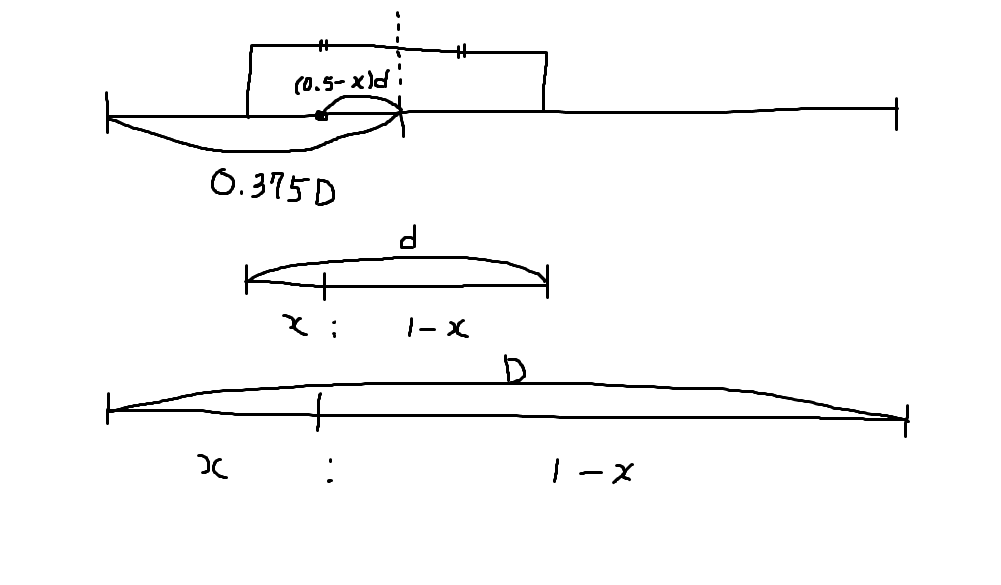 (0.5-x)d
0.375D
d
x : 1-x
D
x : 1-x